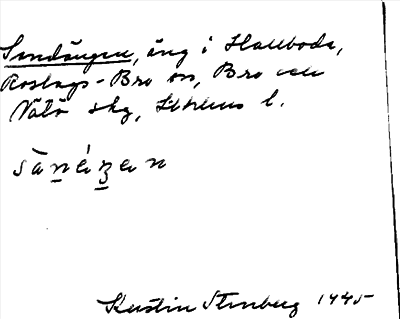 Sandängen, äng i Hallboda,
Roslags-Bro sn, Bro och
Vätö skg, Sthlms l.
sànéʒen
Kerstin Stenberg 1945